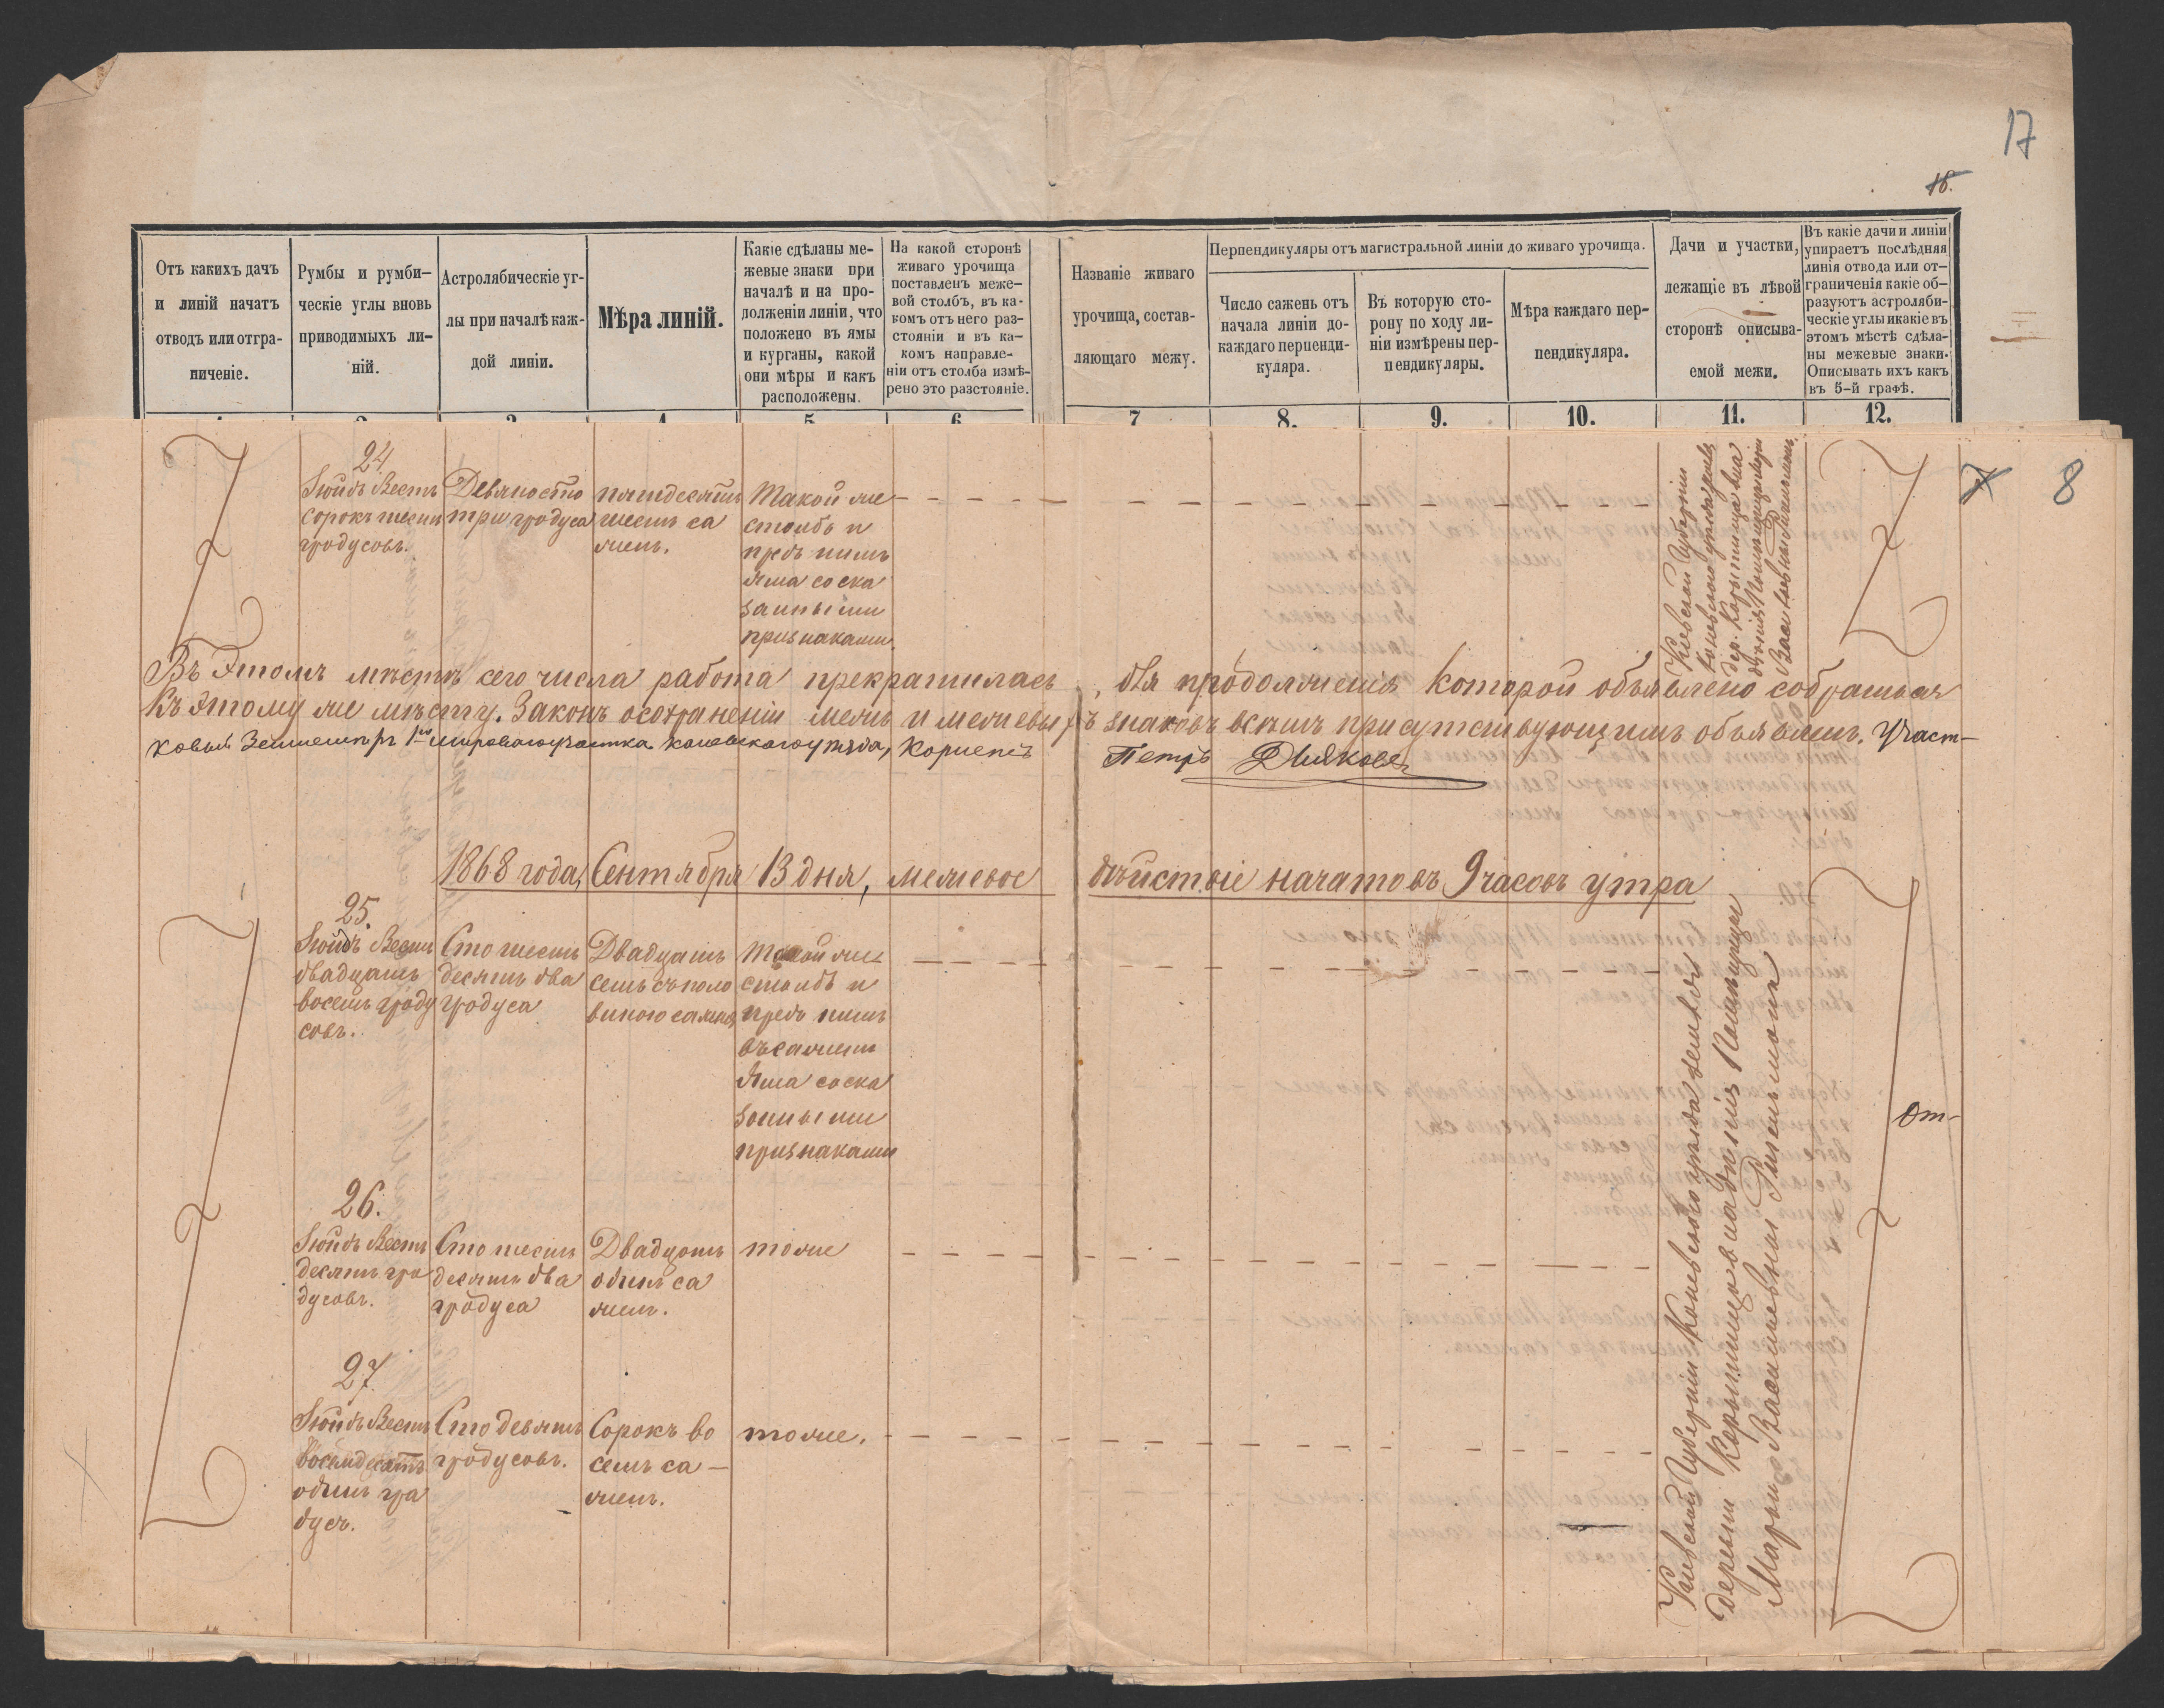 17
18.
Отъ какихъ дачъ
и линій начатъ
отводъ или отгра-
ниченіе.
Румбы и румби-
ческіе углы вновь
приводимыхъ ли-
ній.
Астролябическіе уг-
лы при началѣ каж-
дой линіи.
Мѣра линій.
Какіе сдѣланы ме-
жевые знаки при
началѣ и на про-
долженіи линіи, что
положено въ ямы
и курганы, какой
они мѣры и какъ
расположены.
На какой сторонѣ
живаго урочища
поставленъ меже-
вой столбъ, въ ка-
комъ отъ него раз-
стояніи и въ ка-
комъ направле-
ніи отъ столба измѣ-
рено это разстояніе.
Названіе живаго
урочища, состав-
ляющаго межу.
Перпендикуляры отъ магистральной линіи до живаго урочища.
Число сажень отъ
начала линіи до-
каждаго перпенди-
куляра.
Въ которую сто-
рону по ходу ли-
ніи измѣрены пер-
пендикуляры.
Мѣра каждаго пер-
пендикуляра.
Дачи и участки,
лежащіе въ лѣвой
сторонѣ описыва-
емой межи.
Въ какіе дачи и линіи
упираетъ послѣдняя
линія отвода или от-
граниченія какіе об-
разуютъ астроляби-
ческіе углы и какіе въ
этомъ мѣстѣ сдѣла-
ны межевые знаки.
Описывать ихъ какъ
въ 5-й графѣ.
7
8.
9.
10.
11.
12.
7 8
24
Зюйдъ Вестъ
сорокъ шесть
градусовъ.
Девяносто
три градуса
пятдесятъ
шесть са
жень.
Такой же
столбъ и
предъ нимъ
Яма со ска
занными
признаками.
Кіевской Губерніи
Каневского уѣзда земля
дер. Карытища вла
дѣнія Помѣщицы Маріи
Васильевны Тительмонъ
Въ Этомъ мѣстѣ сего числа работа прекратилась, для продолженія Которой объявлено собраться
Къ этому же мѣсту. Законъ осохраненіи межъ и межевыхъ знаковъ всѣмъ присутствующимъ объявленъ. Участ-
ковый Землемѣръ 1го мироваго участка каневскаго уѣзда, Корнетъ Петръ Дьяковъ
1868 года, Сентября 13 дня, межевое дѣйствіе начато въ 9 часовъ утра
25.
Зюйдъ Вестъ
двадцать
восемь граду
совъ.
Сто шесть
десятъ два
градуса
Двадцать
семь съ поло
виною сажень
Такой же
столбъ и
предъ нимъ
въ сажени
Яма со ска
занными
признаками
26.
Зюйдъ Вестъ
десять гра
дусовъ.
Сто шесть
десятъ два
градуса
Двадцать
одинъ са
жень.
тоже
27.
Зюйдъ Вестъ
восемдесятъ
одинъ гра
дусъ.
Сто девять
градусовъ.
Сорокъ во
семь са-
жень.
тоже.
Кіевской Губерніи Каневского уѣзда земля
деревни Карытища владѣнія Помѣщицы
Маріи Васильевны Тительмонъ
От-